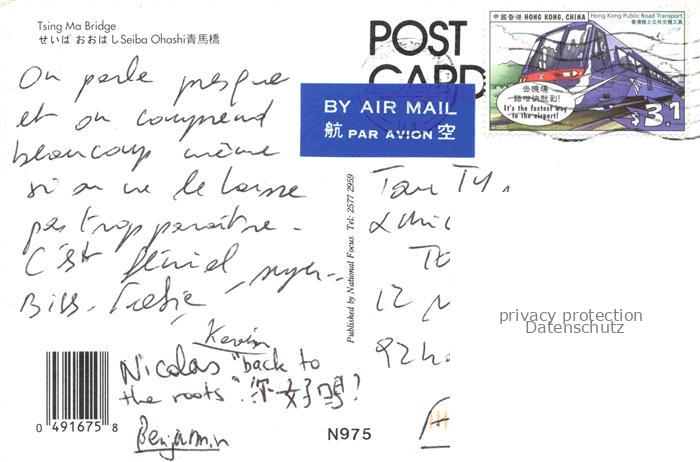 Tsing Ma Bridge
せいば おおはしSeiba Ohashi青馬橋
POST
CARD
BY AIR MAIL
航 PAR AVION 空
中國香港 HONG KONG, CHINA
Hong Kong Public Road Transport
香港陸上公共交通工具
去機場
It's the fastest way
to the airport!
$3.1
On parle presque
et on comprend
beaucoup même
si on ne le laisse
pas trop paraître.
C'est génial
Bises
Kevin
Nicolas "back to
the roots". 你好吗?
Benjamin
Published by National Focus Tel: 2577 2959
12
0 491675 8
N975
privacy protection
Datenschutz